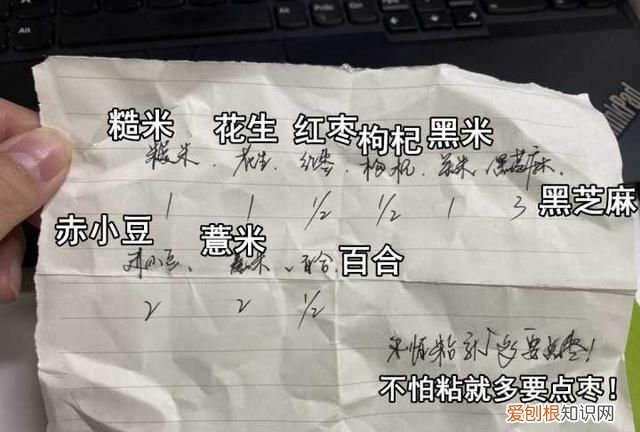 ThinkPad
糙米 花生 红枣 枸杞 黑米
糙米、花生、红枣、枸杞、黑米、黑芝麻、
1 1 1/2 1/2 1 3 黑芝麻
赤小豆 薏米 百合
赤小豆、薏米、百合
2 2 1/2
不怕粘就多要点枣!
不怕粘就多要点枣!
爱刨根知识网